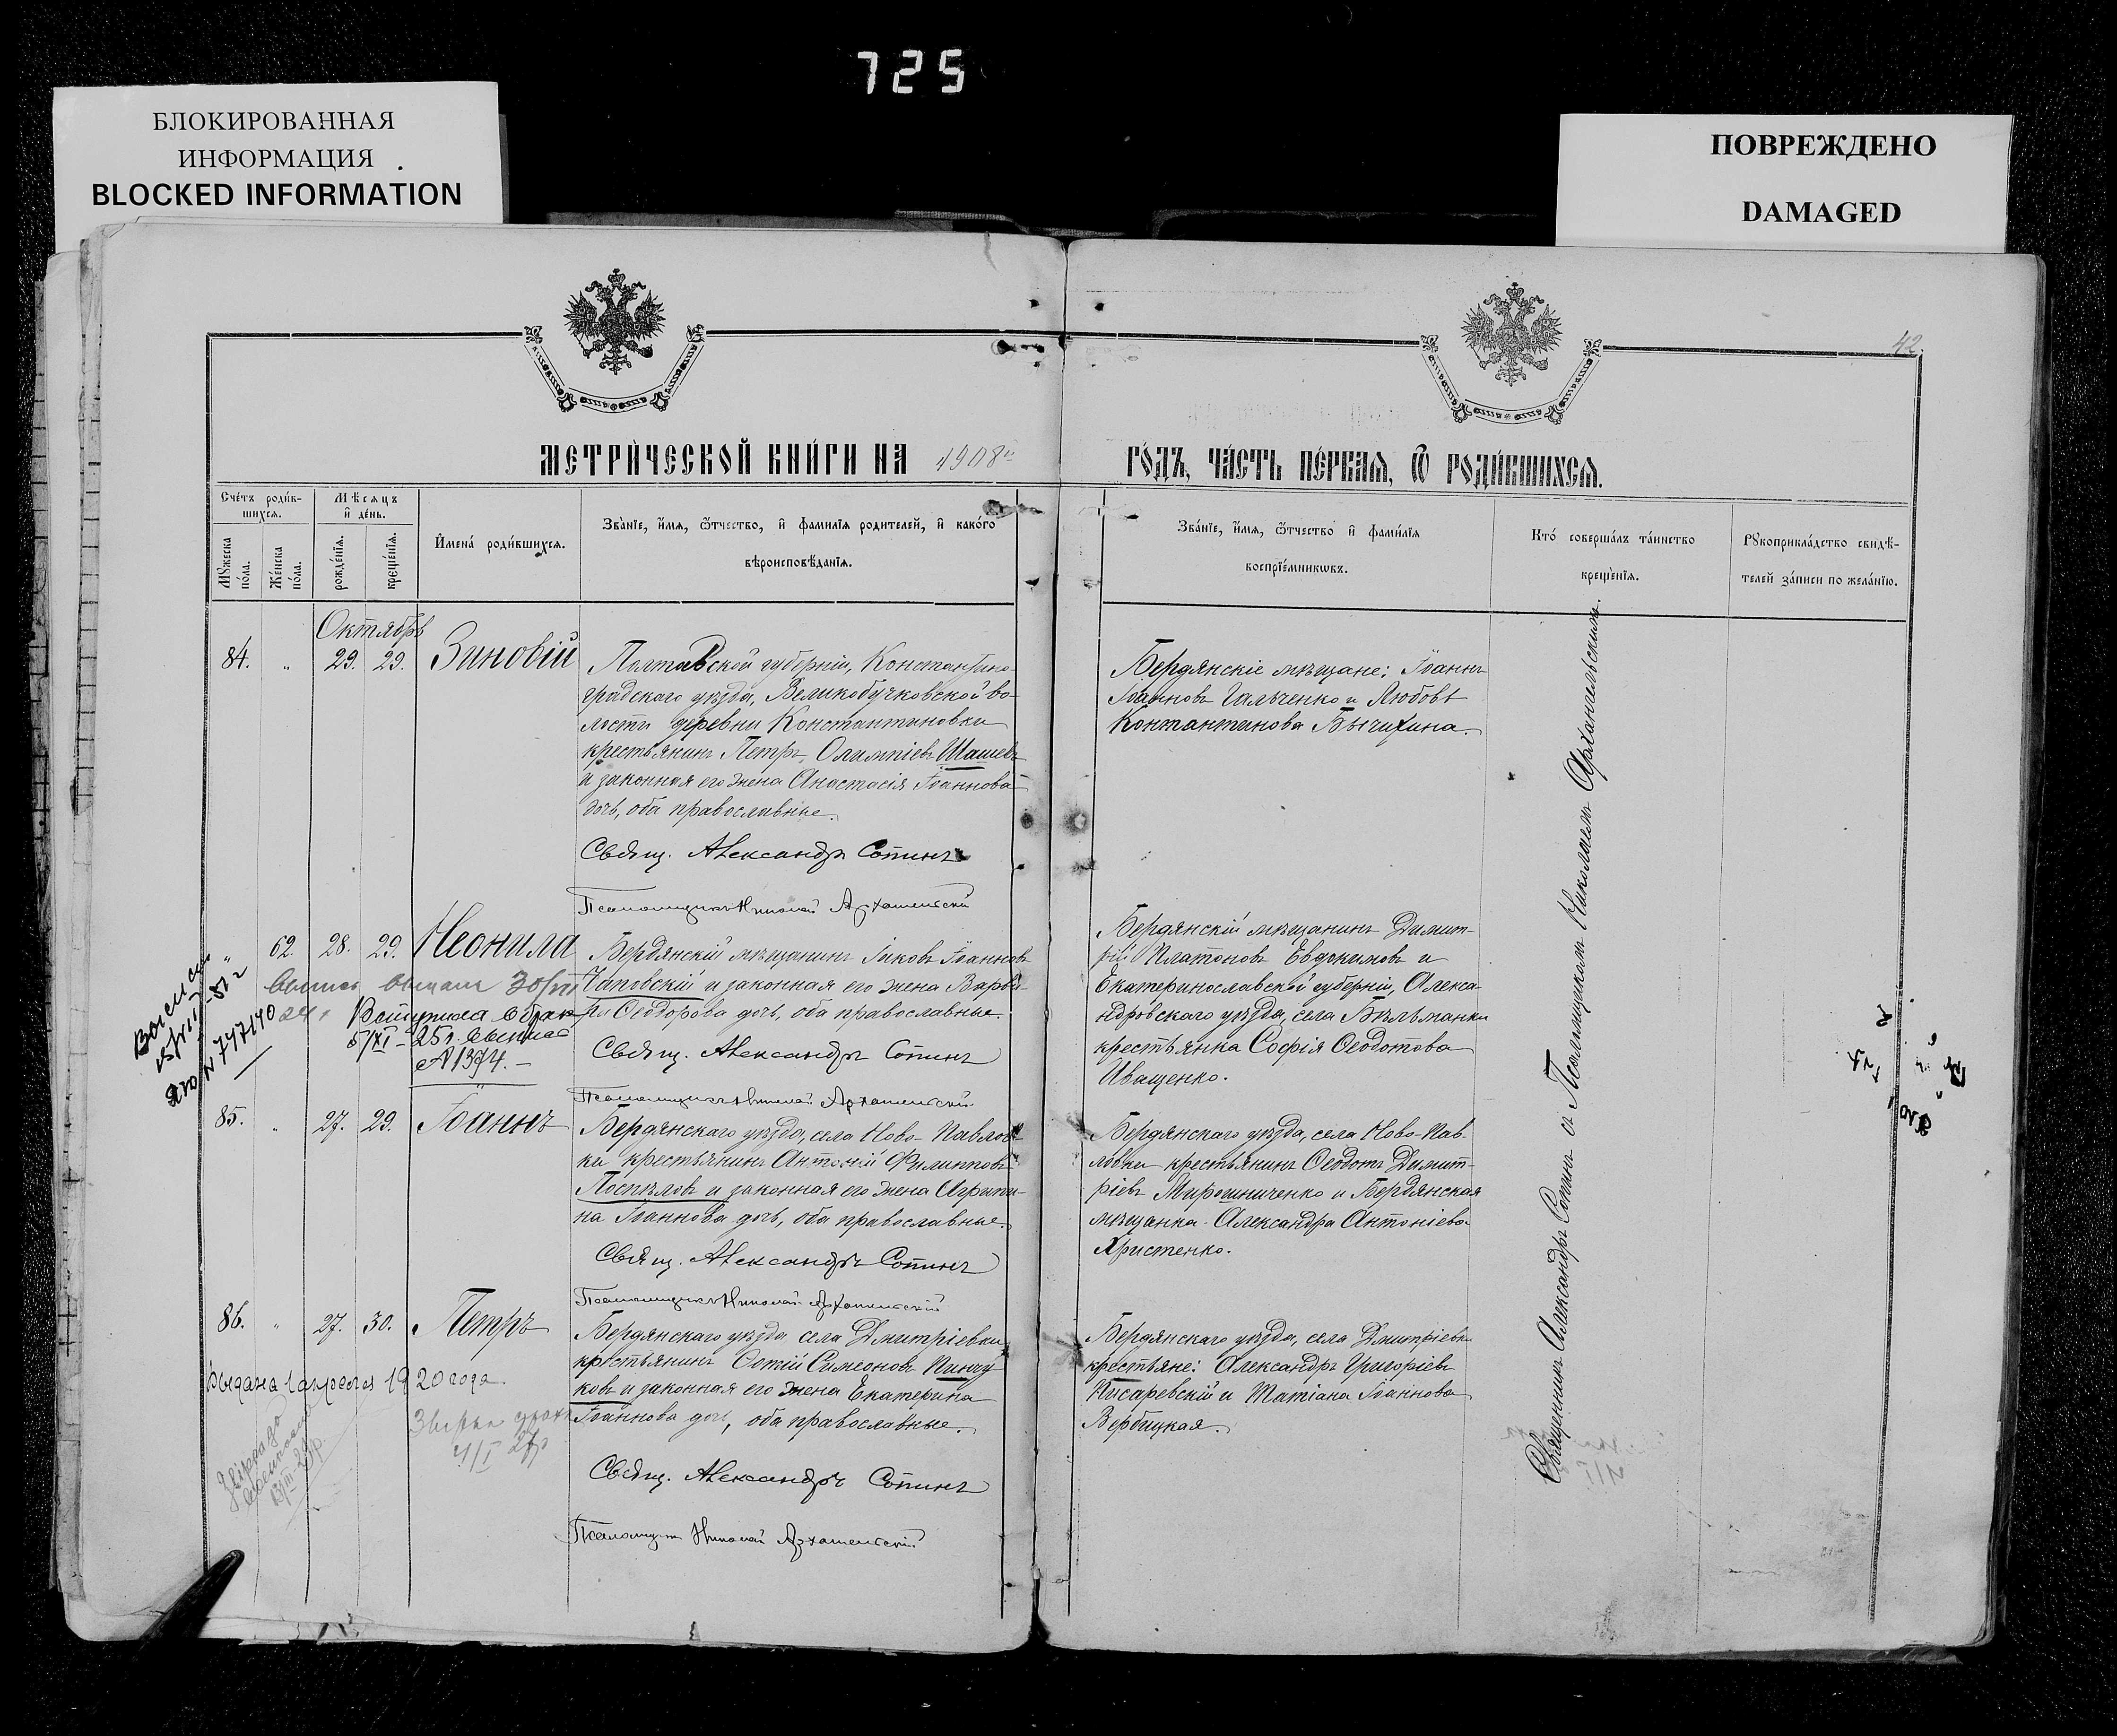 725
БЛОКИРОВАННАЯ
ИНФОРМАЦИЯ
BLOCKED INFORMATION
ПОВРЕЖДЕНО
DAMAGED
42.
МЕТРИ́ЧЕСКОЙ КНИ́ГИ НА 1908
ГО́ДЪ, ЧА́СТЬ ПЕ́РВАѦ, Ѿ РОДИ́ВШИХСѦ.
Сче́тъ роди́в-
шихсѧ.
Мѣ́сѧцъ
и҆ де́нь.
Мꙋ́жеска
по́ла.
Же́нска
по́ла.
рожде́нїѧ.
креще́нїѧ.
И҆мена̀ роди́вшихсѧ.
Зва́нїе, и҆́мѧ, ѻ҆́тчество, и҆ фами́лїѧ роди́телей, и҆ како́гѡ
вѣроисповѣ́данїѧ.
Зва́нїе, и҆́мѧ, ѻ҆́тчество и҆ фами́лїѧ
воспрїе́мникѡвъ.
Кто̀ соверша́лъ та́инство
креще́нїѧ.
Рꙋкоприкла́дство свидѣ́-
телей за́писи по жела́нїю.
Октябрь
84. " 29. 29. Зиновій
Полтавской губерніи, Константино-
градскаго уѣзда, Великобучковской во-
лости деревни Константиновки
крестьянинъ Петръ Олимпіевъ Шашевъ
и законная его жена Анастасія Іоаннова
дочь, оба православные.
Свящ. Александръ Сопинъ
Псаломщикъ Николай Архангельскій
Бердянскіе мѣщане: Іоаннъ
Іоанновъ Гальченко и Любовь
Контантинова Бычихина.
" 62. 28. 29. Неонила
Бердянскій мѣщанинъ Іаковъ Іоанновъ
Чаповскій и законная его жена Варва-
ра Ѳеодорова дочь, оба православные.
Свящ. Александръ Сопинъ
Псаломщикъ Николай Архангельскій
30/VII
24
5/XI - 25г.
№ 1394.-
ЯЮ № 747170
Бердянскій мѣщанинъ Димит-
рій Платоновъ Евдокимовъ и
Екатеринославской губерніи, Алекса-
ндровскаго уѣзда, села Бѣльманки
крестьянка Софія Ѳеодотова
Иващенко.
85. " 27. 29. Іоаннъ
Бердянскаго уѣзда, села Ново-Павлов-
ки крестьянинъ Антоній Филипповъ
Поспѣловъ и законная его жена Агрипи-
на Іоаннова дочь, оба православные.
Свящ. Александръ Сопинъ
Псаломщикъ Николай Архангельскій
Бердянскаго уѣзда, села Ново-Пав-
ловки крестьянинъ Ѳеодотъ Димит-
ріевъ Мирошниченко и Бердянская
мѣщанка Александра Антоніева
Христенко.
86. " 27. 30. Петръ
Бердянскаго уѣзда села Дмитріевки
крестьянинъ Симеоновъ Пинчу
ковъ и законная его жена Екатерина
Іоаннова дочь, оба православные.
Свящ. Александръ Сопинъ
Псаломщик Николай Архангельскій
Выдана 1 апреля 1920 года.
4/I 27р
Бердянскаго уѣзда, села Дмитріевки
крестьяне: Александръ Григоріевъ
Писаревскій и Татіана Іоаннова
Вербицкая.
Священникъ Александръ Сопинъ съ Псаломщикомъ Николаемъ Архангельскимъ.